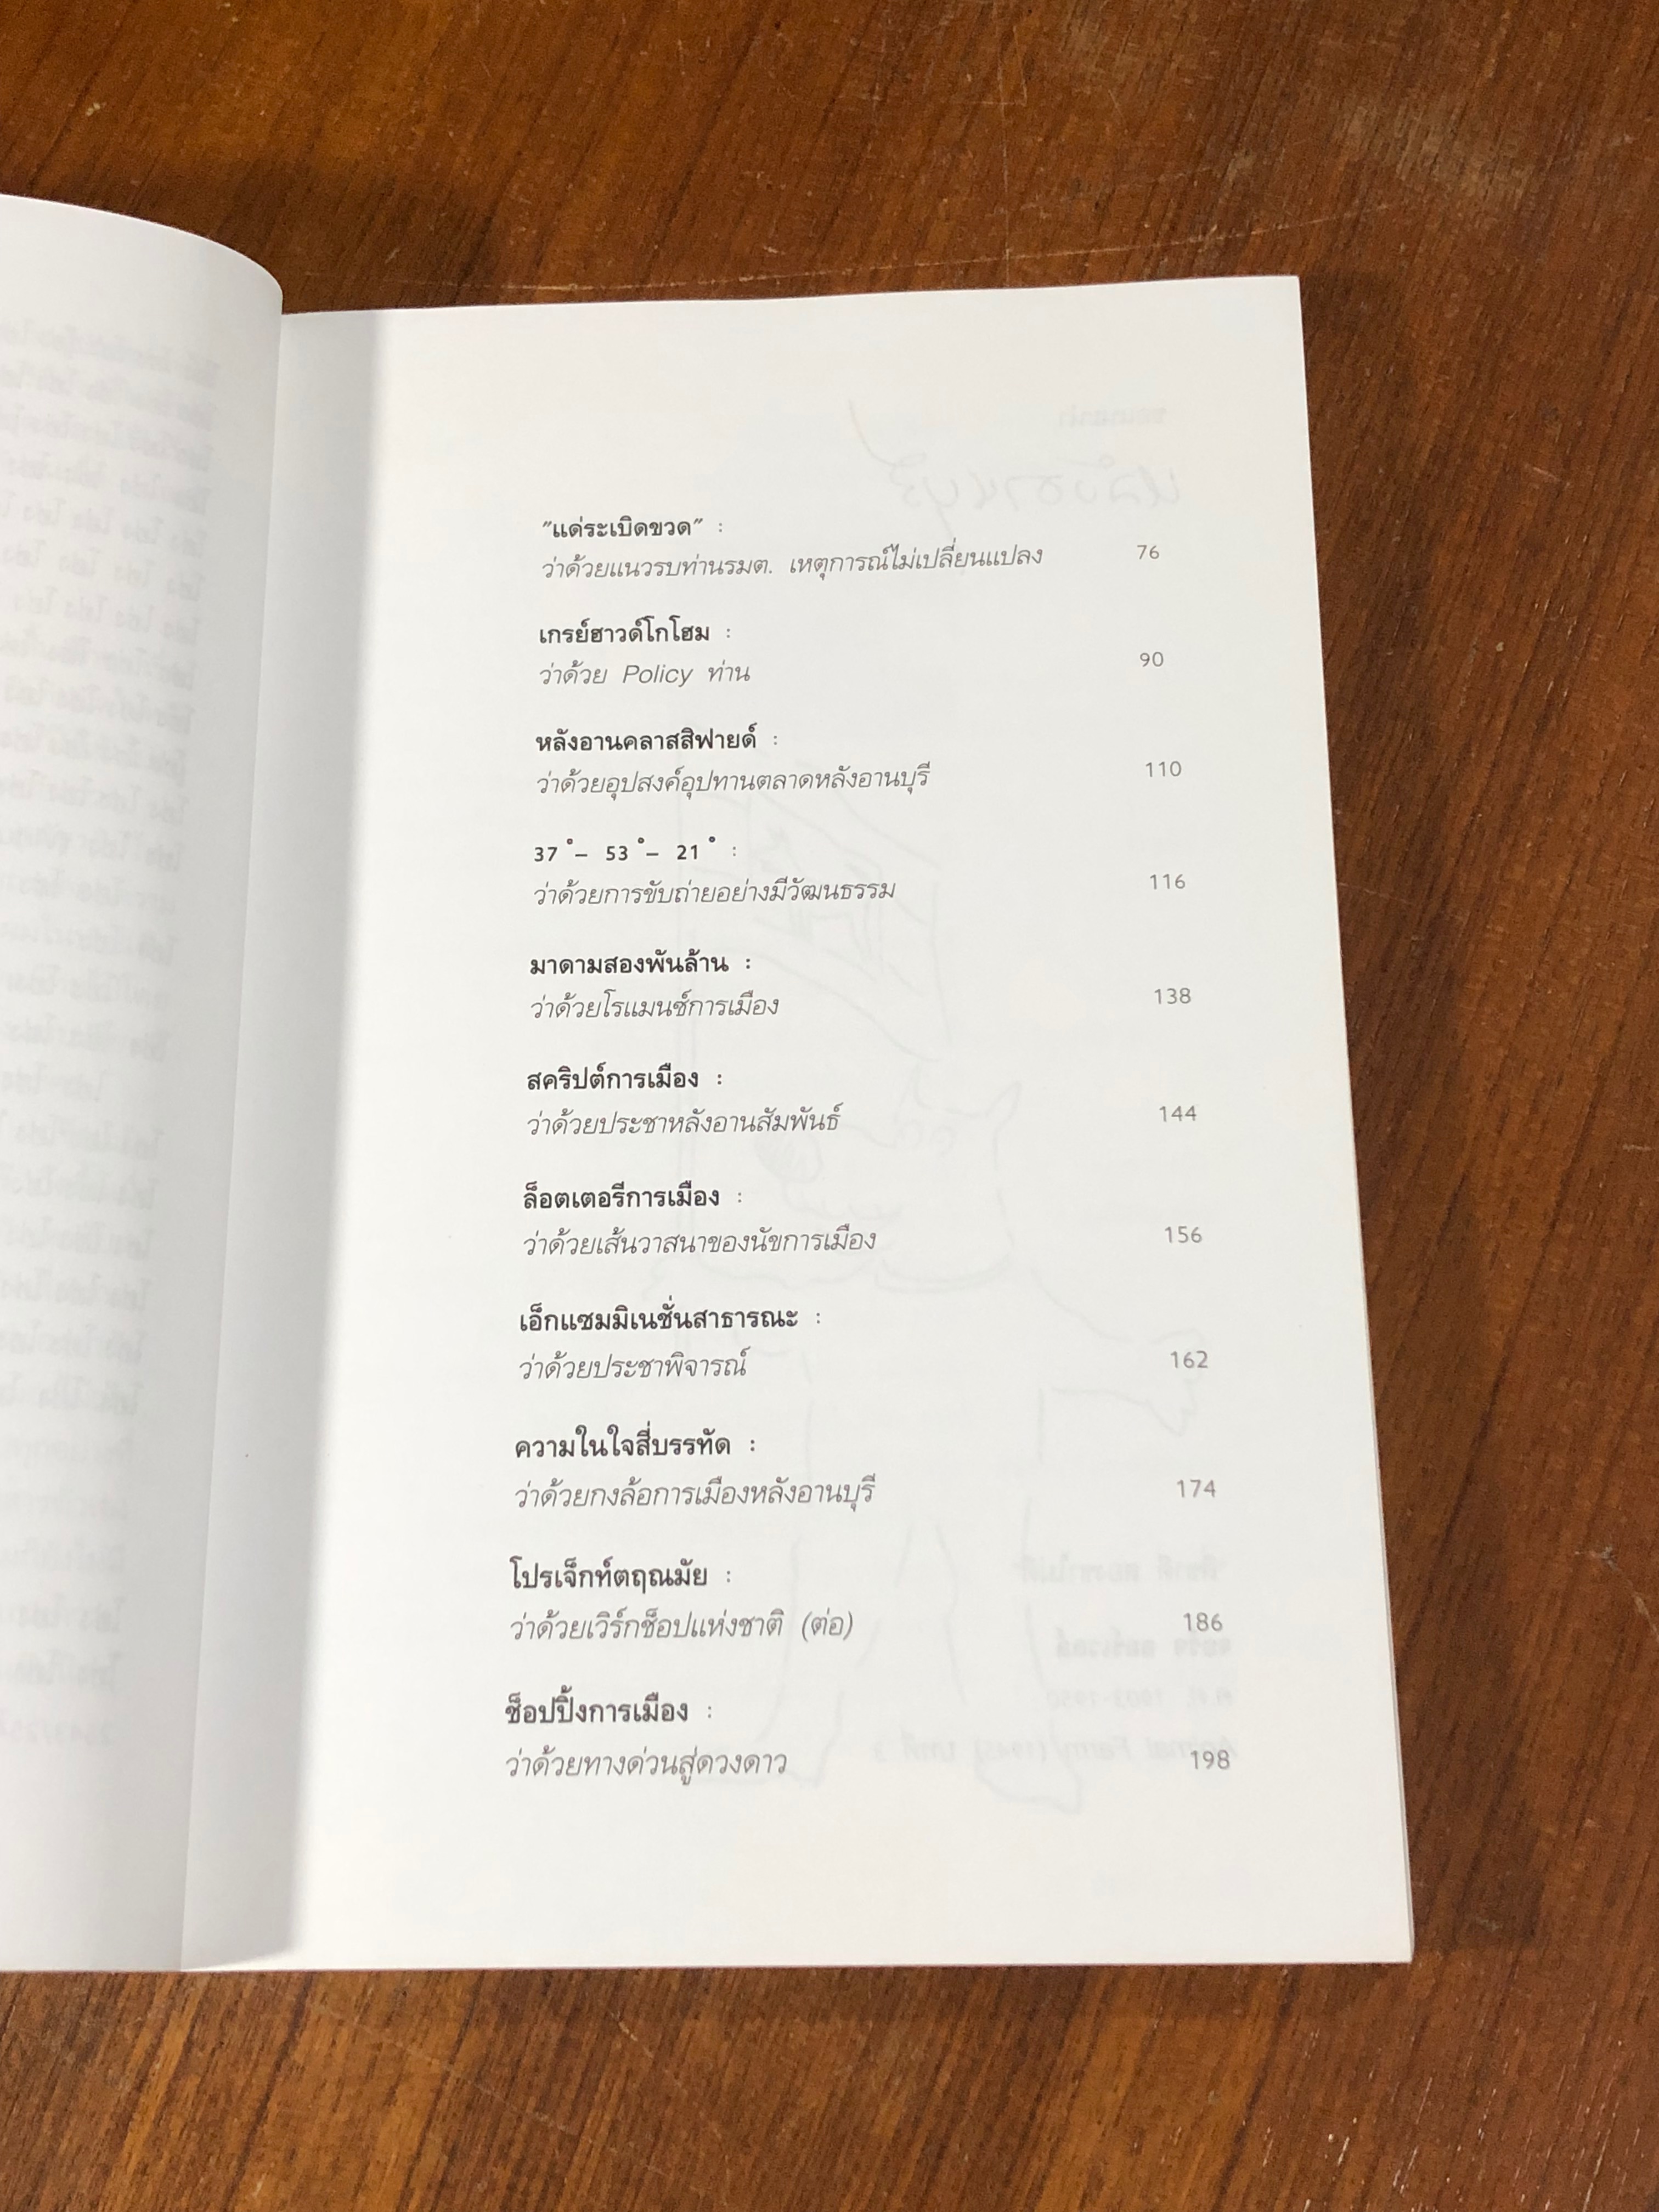 "แด่ระเบิดขวด" :
ว่าด้วยแนวรบท่านรมต. เหตุการณ์ไม่เปลี่ยนแปลง 76
เกรย์ฮาวด์โกโฮม :
ว่าด้วย Policy ท่าน 90
หลังอานคลาสสิฟายด์ :
ว่าด้วยอุปสงค์อุปทานตลาดหลังอานบุรี 110
37 °– 53 °– 21 ° :
ว่าด้วยการขับถ่ายอย่างมีวัฒนธรรม 116
มาดามสองพันล้าน :
ว่าด้วยโรแมนซ์การเมือง 138
สคริปต์การเมือง :
ว่าด้วยประชาหลังอานสัมพันธ์ 144
ล็อตเตอรีการเมือง :
ว่าด้วยเส้นวาสนาของนัขการเมือง 156
เอ็กแซมมิเนชั่นสาธารณะ :
ว่าด้วยประชาพิจารณ์ 162
ความในใจสี่บรรทัด :
ว่าด้วยกงล้อการเมืองหลังอานบุรี 174
โปรเจ็กท์ตฤณมัย :
ว่าด้วยเวิร์กช็อปแห่งชาติ (ต่อ) 186
ช็อปปิ้งการเมือง :
ว่าด้วยทางด่วนสู่ดวงดาว 198